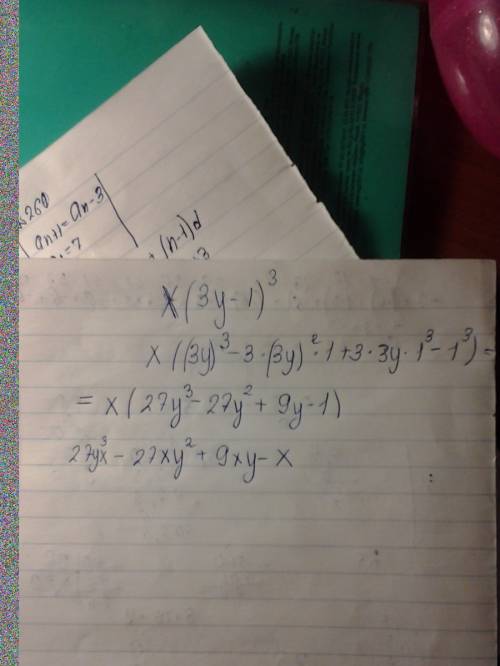 №260
an+1=an-3
=7
+(n-1)d
x(3y-1)³
x((3y)³-3·(3y)²·1+3·3y·1³-1³)=
=x(27y³-27y²+9y-1)
27yx³-27xy²+9xy-x